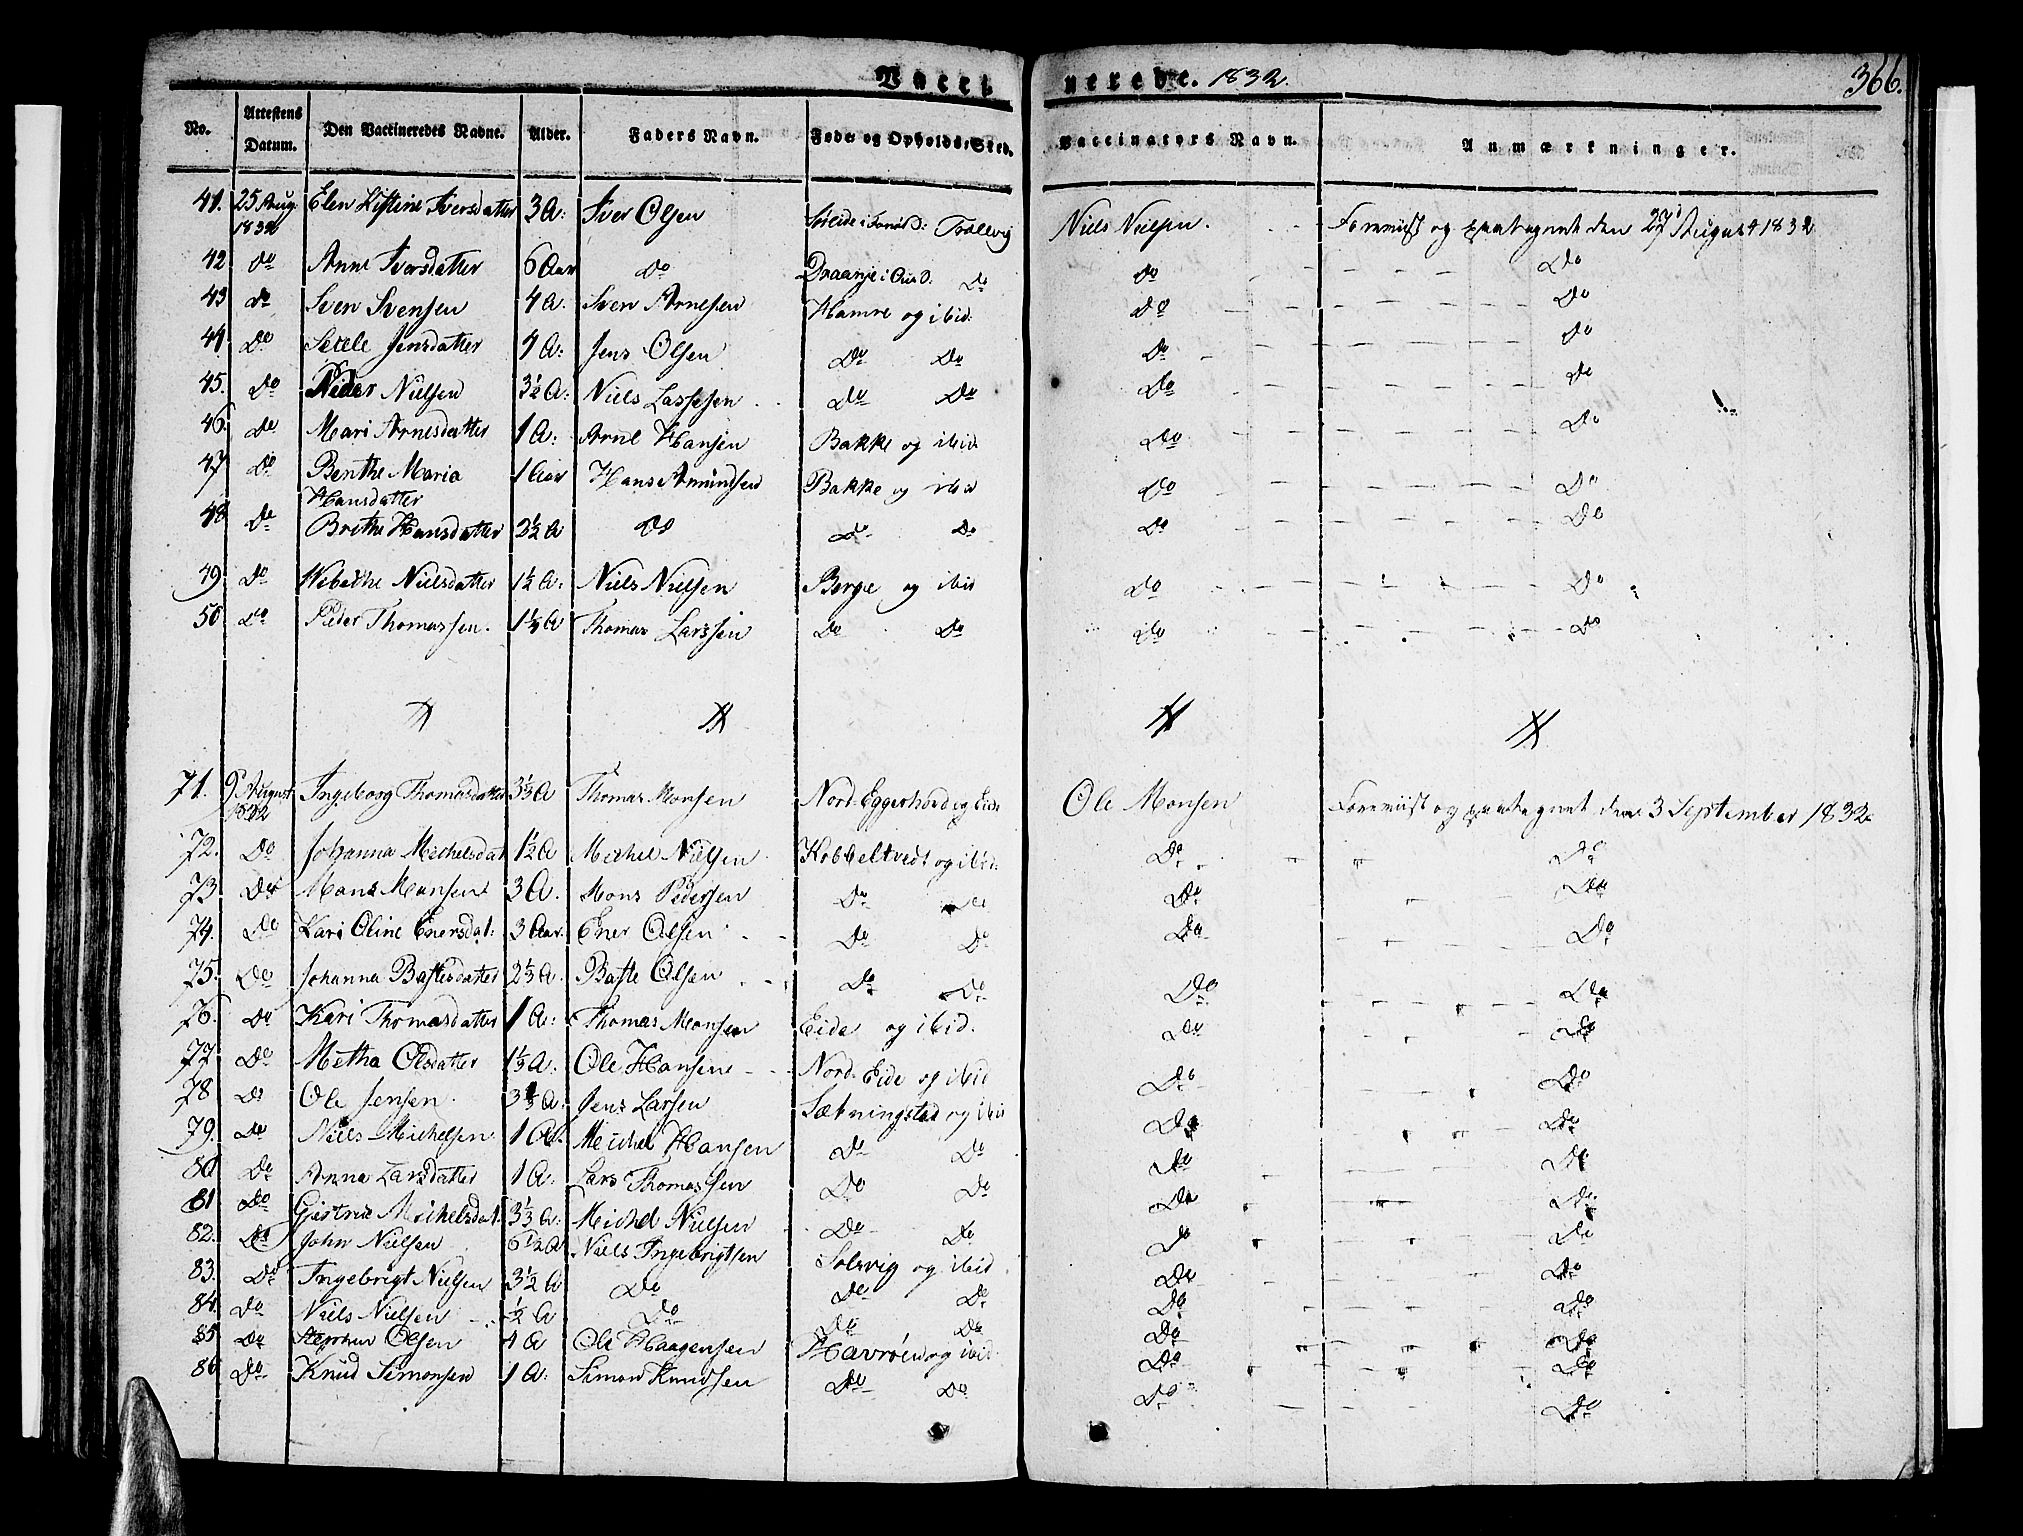 Vacci nerede. 1832. 366.
No. Attestens Datum. Den Vaccineredes Navne. Alder. Faders Navn. Føde og Opholds-Sted. Vaccinators Navn. Anmærkninger.
41. 25 Aug: 1832 Elen Kistine Iversdatter 3 A: Iver Olsen Trollvig Niels Nielsen. Foreviist og paategnet den 27 August 1832
42 Do Anne Iversdatter 6 Aar Do Do Do Do
43 Do Sven Svensen 4 A. Sven Arnesen Hamre og ibid: Do Do
44. Do Jensdatter 4 A: Jens Olsen Do Do Do Do
45. Do Peder Nielsen 3½ A: Niels Lassesen Do Do Do Do
46. Do Mari Arnesdatter 1 A: Arne Hansen Bakke og ibid. Do Do
47 Do Benthe Maria Hansdatter 1 Aar Hans Amundsen Bakke og ibid Do Do
48 Do Brithe Hansdatter 2½ A Do Do Do Do Do
49. Do Wibethe Nielsdatter 1½ A: Niels Nielsen Berge og ibid Do Do
50 Do Peder Thomassen. 1¼ A Thomas Larssen Do Do Do Do
71. 9 August 1832 Ingeborg Thomasdatter 3⅓ A Thomas Monsen Nord-Eggerhord og Eide Ole Monsen Foreviist og paategnet den 3 September 1832
72. Do Johanna Michelsdat 1½ A Michel Nielsen Kobbeltvedt og ibid: Do Do
73. Do Mons Monsen 3 A. Mons Pedersen Do Do Do Do
74. Do Kari Oline Enersdat: 3 Aar. Ener Olsen Do Do Do Do
75. Do Johanna Bastesdatter 2⅓ A. Baste Olsen Do Do Do Do
76. Do Kari Thomasdatter 1 A: Thomas Monsen Eide og ibid. Do Do
77. Do Metha Olsdatter 1⅓ A: Ole Hansen Nord-Eide og ibid Do Do
78 Do Ole Jensen. 3⅓ A: Jens Larsen Sætningstad og ibid Do Do
79. Do Niels Michelsen 1 A Michel Hansen Do Do Do Do
80 Do Anna Larsdatter 1 A: Lars Thomassen Do Do Do Do
81 Do Michelsdat. 3⅓ A: Michel Nielsen Do Do Do Do
82. Do John Nielsen 6½ A Niels Ingebrigtsen Solsvig og ibid Do Do
83. Do Ingebrigt Nielsen 3½ A Do Do Do Do Do
84. Do Niels Nielsen ½ A Do Do Do Do Do
85. Do Stephen Olsen 4 A Ole Haagensen Havrøen og ibid. Do Do
86 Do Knud Simonsen 1 A: Simon Knudsen Do Do Do Do